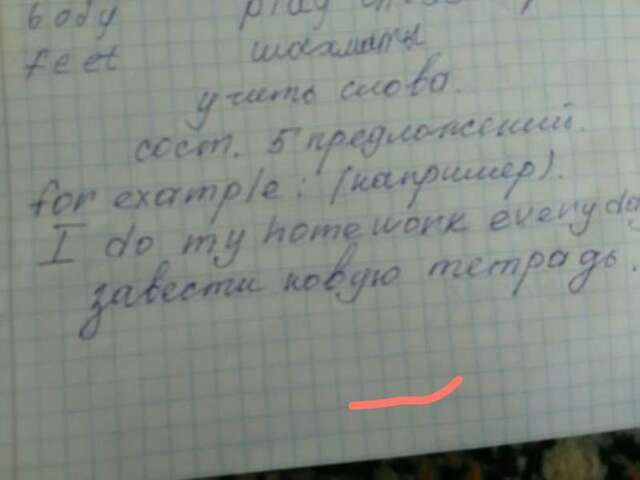 body play
feet шахматы
учить слова.
сост. 5 предложений.
for example: (например).
I do my homework every day
завести новую тетрадь.